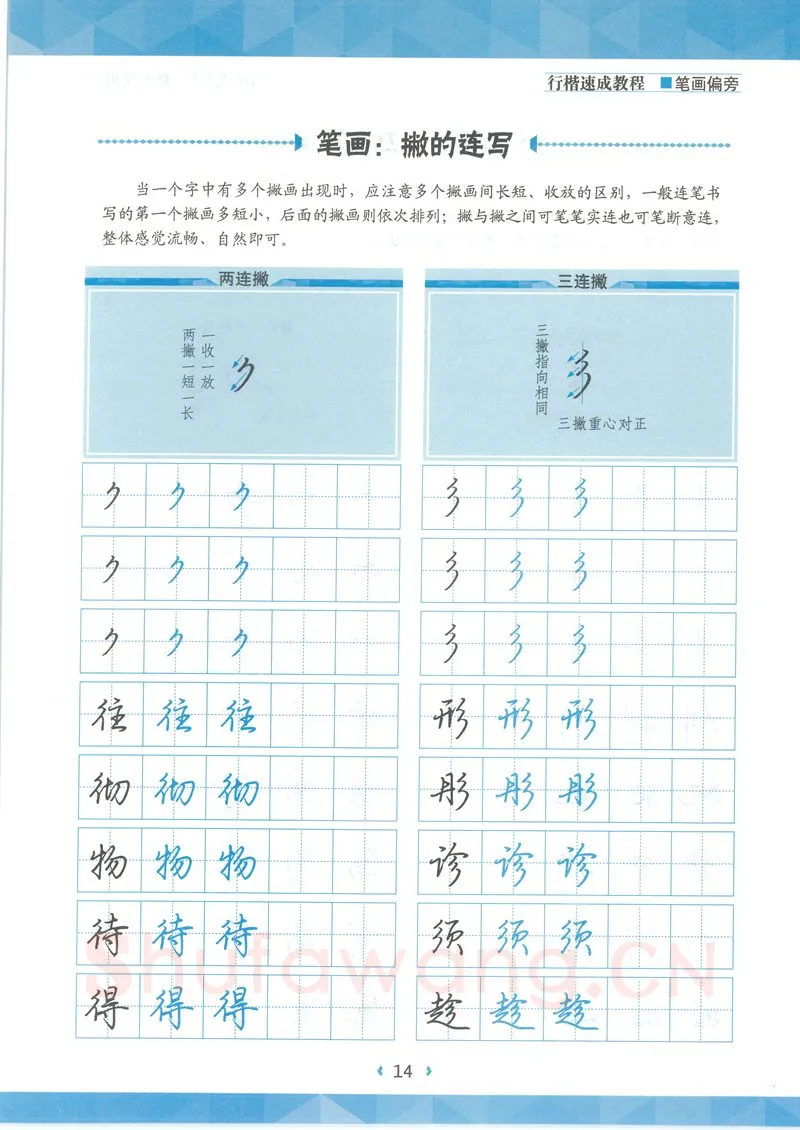 行楷速成教程 ■笔画偏旁
笔画：撇的连写
当一个字中有多个撇画出现时，应注意多个撇画间长短、收放的区别，一般连笔书
写的第一个撇画多短小，后面的撇画则依次排列；撇与撇之间可笔笔实连也可笔断意连，
整体感觉流畅、自然即可。
两连撇
一收一放
两撇一短一长
三连撇
三撇指向相同
三撇重心对正
往 往 往
彻 彻 彻
物 物 物
待 待 待
得 得 得
彡 彡 彡
彡 彡 彡
彡 彡 彡
形 形 形
彤 彤 彤
诊 诊 诊
须 须 须
趁 趁 趁
Shufawang.CN
14